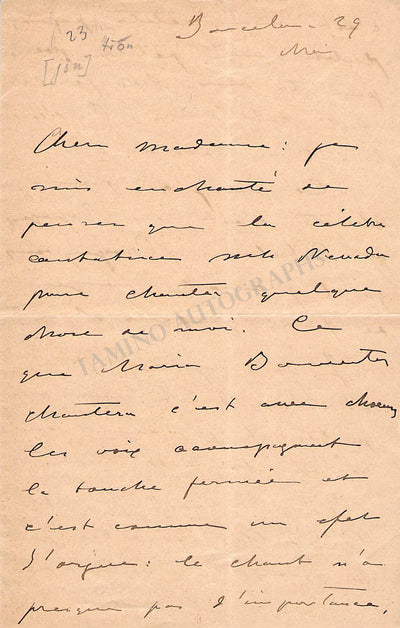 23
[jön]
Barcelone 29
Chere madame : je
suis enchanté de
penser que la célebre
cantatrice Melle Nevada
pense chanter quelque
chose de moi. Ce
que Maria
chantera c'est avec choeur
les voix acompagnent
la bouche fermée et
c'est comme un efet
d'orgue : le chant n'a
presque pas d'importance,
TAMINO AUTOGRAPHS